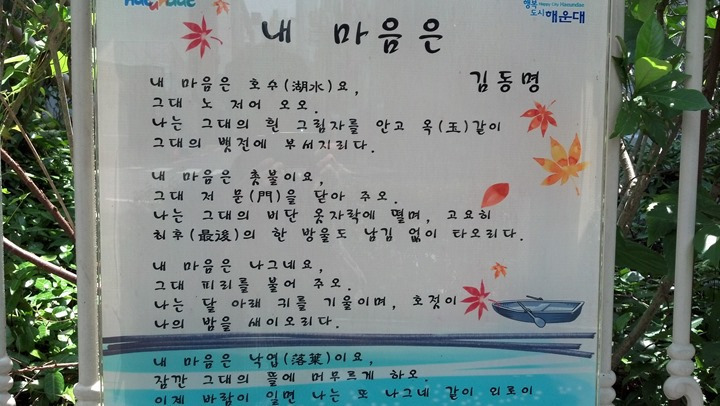 행복
도시 Happy City Haeundae
해운대
내 마음은
김동명
내 마음은 호수(湖水)요,
그대 노 저어 오오.
나는 그대의 흰 그림자를 안고 옥(玉)같이
그대의 뱃전에 부서지리다.
내 마음은 촛불이요,
그대 저 문(門)을 닫아 주오.
나는 그대의 비단 옷자락에 떨며, 고요히
최후(最後)의 한 방울도 남김 없이 타오리다.
내 마음은 나그네요,
그대 피리를 불어 주오.
나는 달 아래 귀를 기울이며, 호젓이
나의 밤을 새이오리다.
내 마음은 낙엽(落葉)이요,
잠깐 그대의 뜰에 머무르게 하오.
이제 바람이 일면 나는 또 나그네 같이 외로이